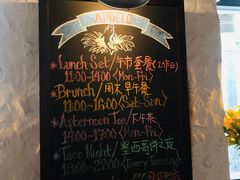 APOLLO
*Lunch Set/午市套餐(工作日)
11:00-14:00 <Mon-Fri>
*Brunch/周末早午餐
11:00-16:00 <Sat-Sun>
*Afternoon Tea/下午茶
14:00-17:00 <Mon-Fri>
*Taco Night/墨西哥之夜
18:00-22:00 <Every Tuesday>